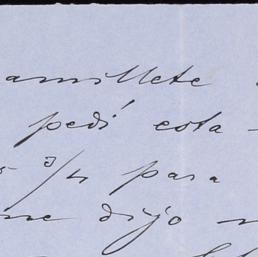 amillete
pedí esta
3/4 para
me dijo